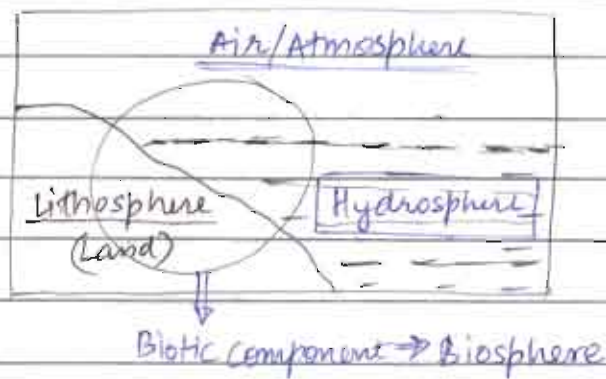 Air/Atmosphere
Lithosphere
(Land)
Hydrosphere
Biotic component ⇒ Biosphere